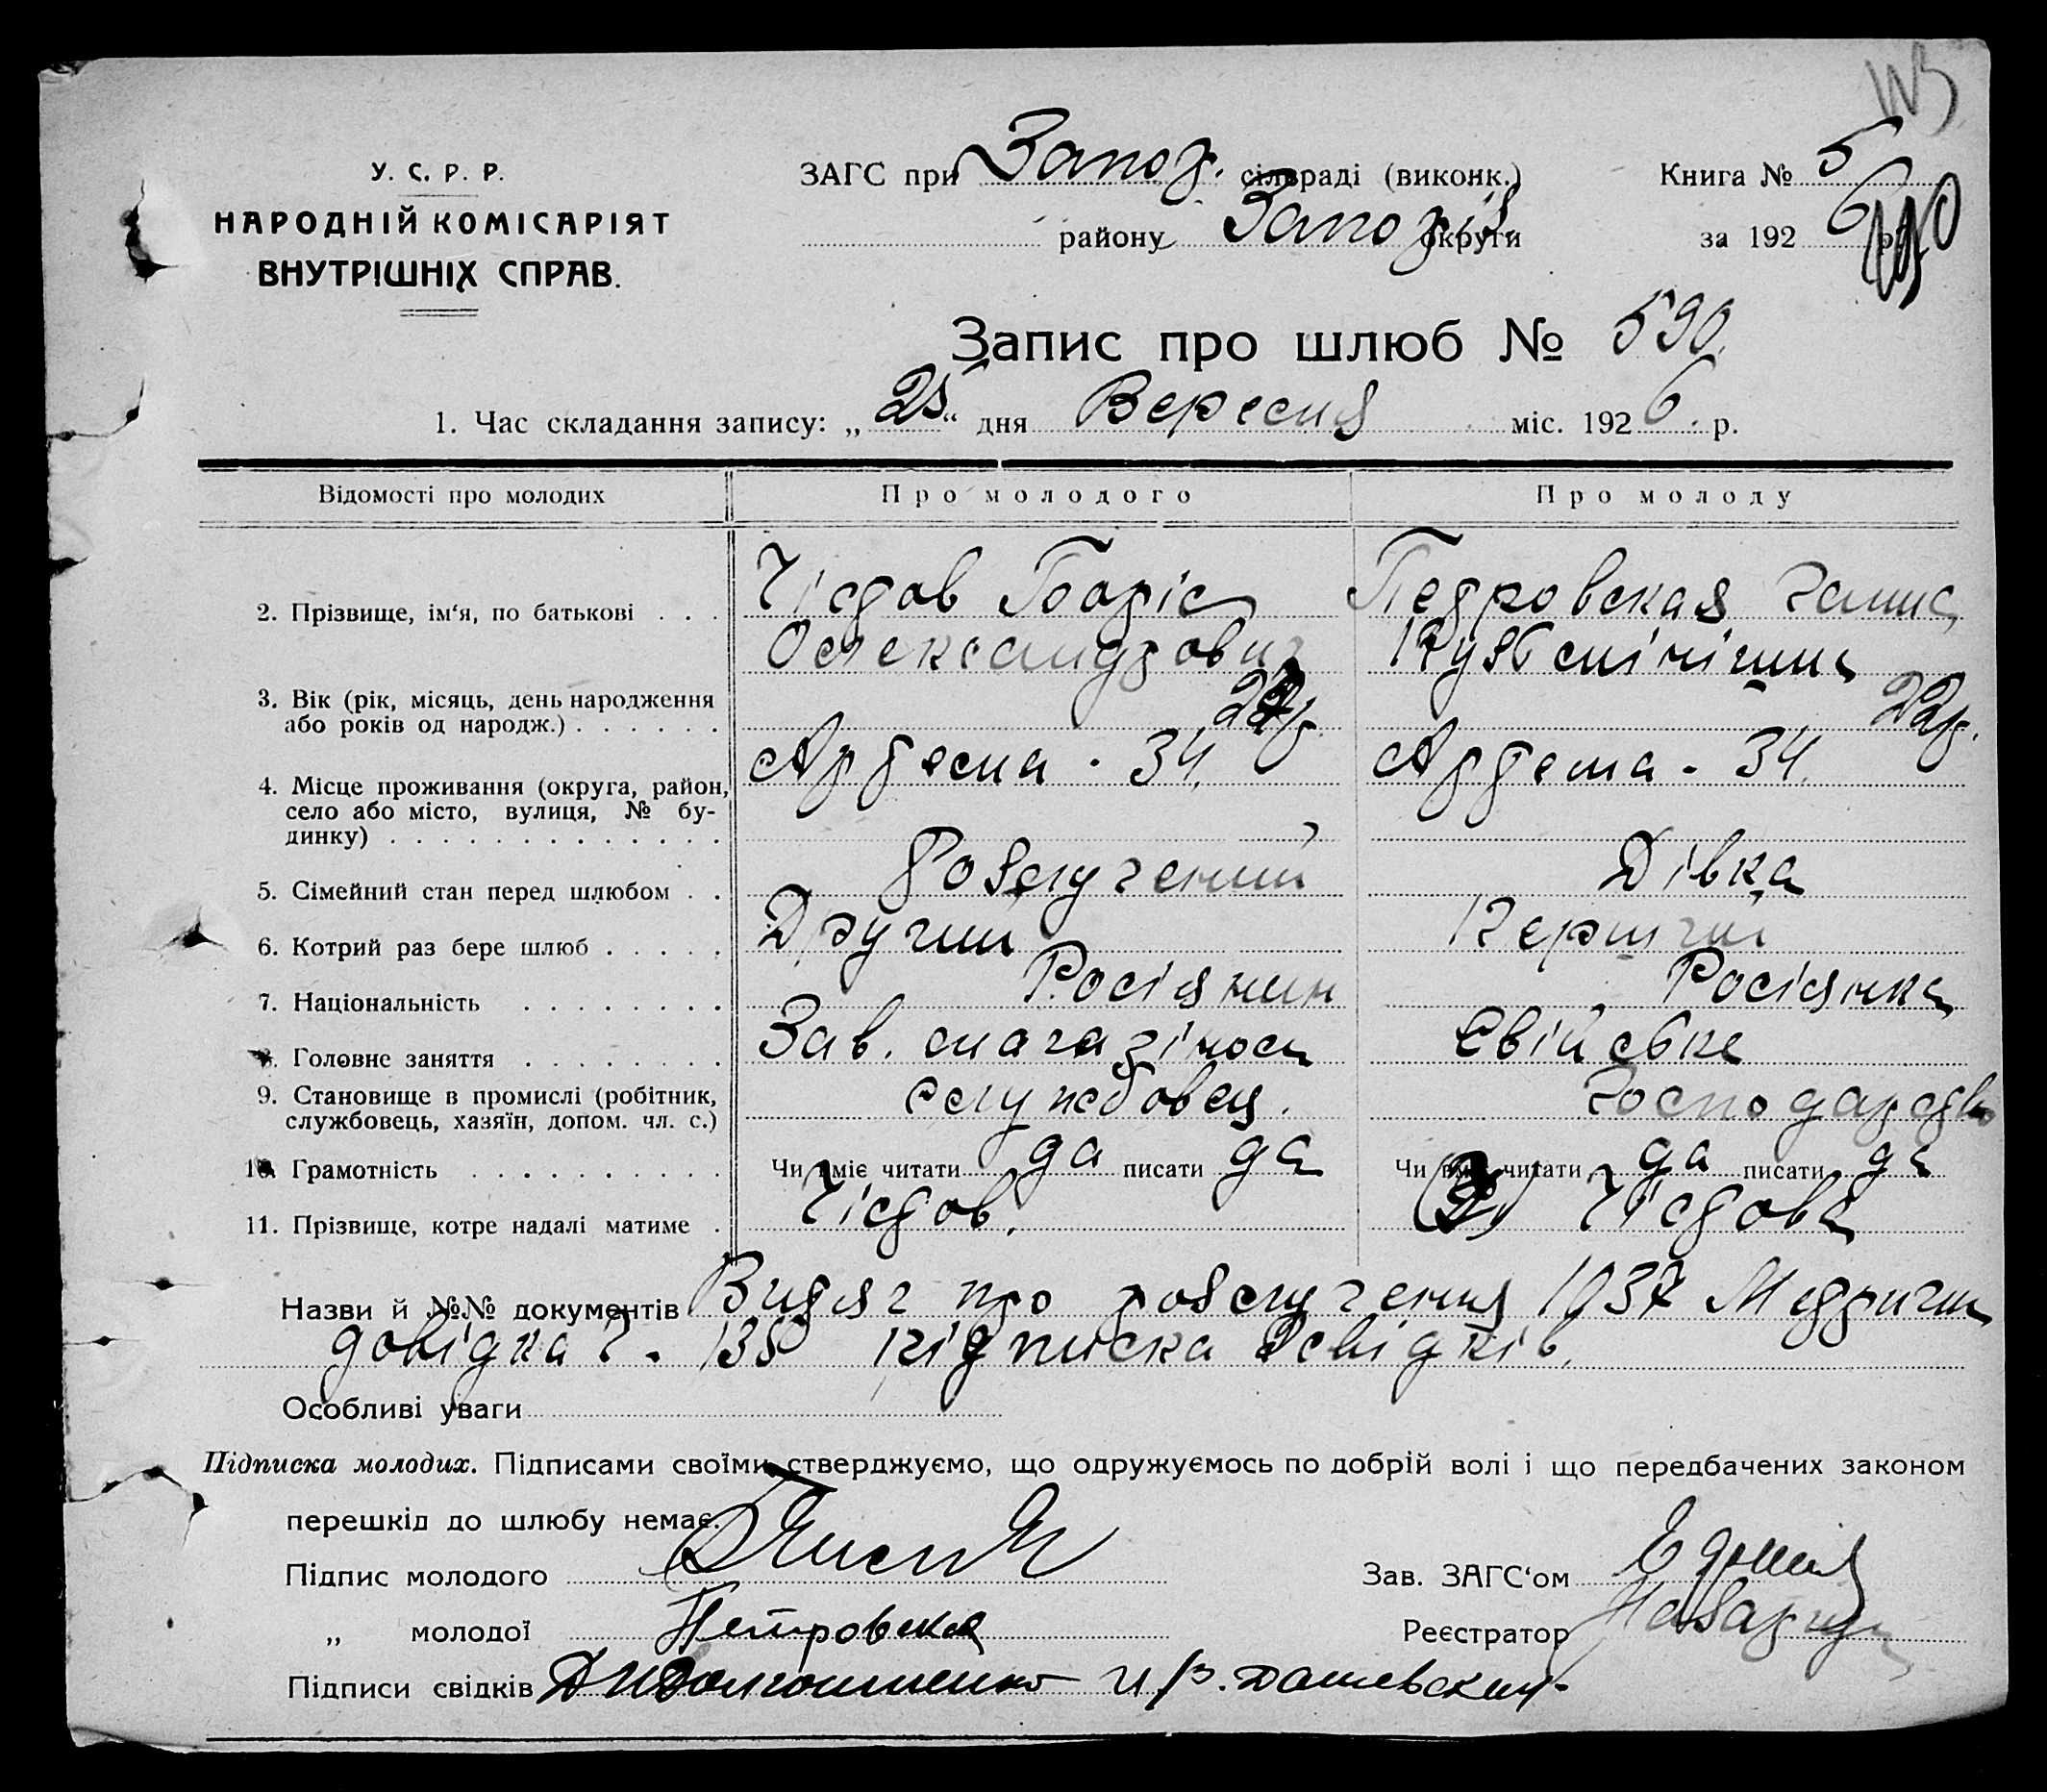 У. С. Р. Р.
НАРОДНІЙ КОМІСАРІЯТ
ВНУТРІШНІХ СПРАВ.
ЗАГС при Запор. сільраді (виконк.) Книга № 5
району Запоріз. округи за 192 6 р.
Запис про шлюб № 590
1. Час складання запису: „25“ дня Вересня міс. 1926 р.
Відомості про молодих Про молодого Про молоду
2. Прізвище, ім‘я, по батькові . . . Чістов Боріс Петровская Галина
Олександрович
3. Вік (рік, місяць, день народження
або років од народж.) . . . . . . 22р.
4. Місце проживання (округа, район, Артема - 34. Артема - 34.
село або місто, вулиця, № бу-
динку) . . . . . . . . . . . . .
5. Сімейний стан перед шлюбом . . Розлучений Дівка
6. Котрий раз бере шлюб . . . . . Другий Перший
7. Національність . . . . . . . . Росіянин Росіянка
8. Головне заняття . . . . . . . . Зав. магазіном Свійське
9. Становище в промислі (робітник, службовець. господарство
службовець, хазяїн, допом. чл. с.)
10. Грамотність . . . . . . . . . . Чи вміє читати да писати да Чи вміє читати да писати да
11. Прізвище, котре надалі матиме . Чістов. Чістова
Назви й №№ документів Витяг про розлучення 1037 Метричн
довідка 135 підписка свідків.
Особливі уваги
Підписка молодих. Підписами своїми стверджуємо, що одружуємось по добрій волі і що передбачених законом
перешкід до шлюбу немає.
Підпис молодого Зав. ЗАГС‘ом
„ молодої Петровская Реєстратор
Підписи свідків и Дашевский